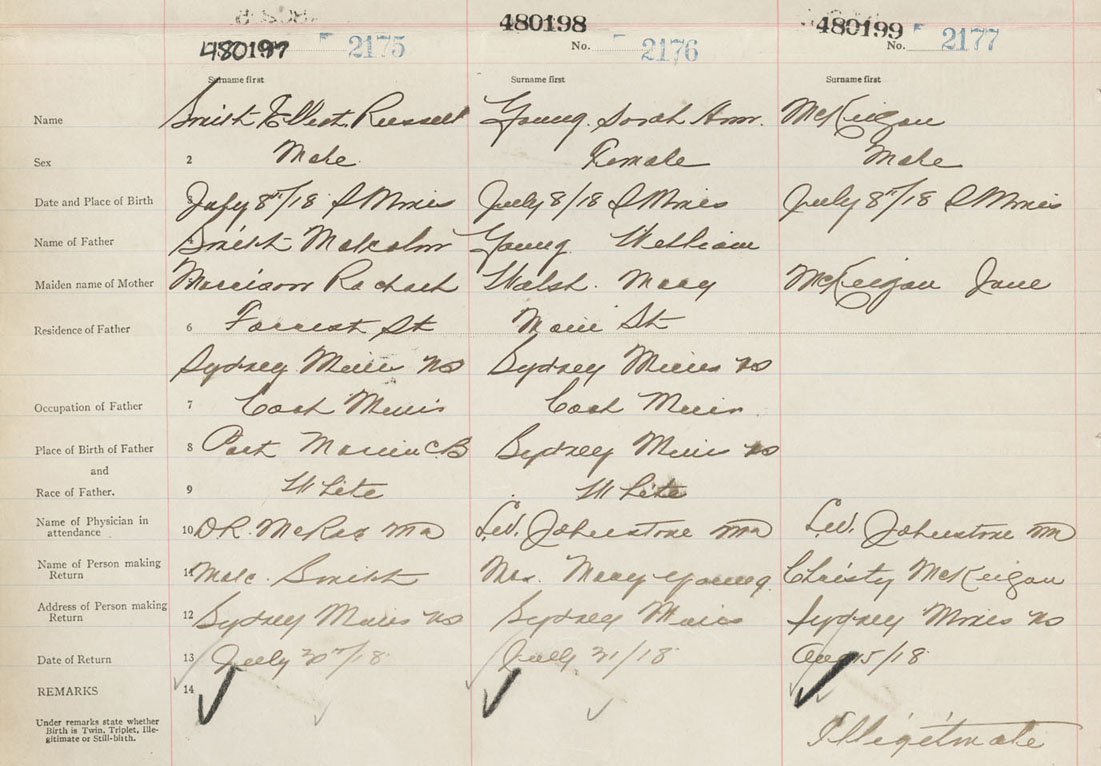 480197 2175 480198 No. 2176 480199 No. 2177
Surname first Surname first Surname first
Name Smith Russell Young. Sarah Ann. McKeigan
Sex 2 Male Female Male
Date and Place of Birth 3 July 8th/18 S Mines July 8/18 S Mines July 8th/18 S Mines
Name of Father 4 Smith Malcolm Young William
Maiden name of Mother Morrison Rachael Walsh. Mary McKeigan Jane
Residence of Father 6 Forrest St Main St
Sydney Mines NS Sydney Mines NS
Occupation of Father 7 Coal Miner Coal Miner
Place of Birth of Father 8 Port Morien C.B Sydney Mines NS
and
Race of Father. 9 White White
Name of Physician in
attendance 10 DR. McRae MD L.W. Johnstone MD L.W. Johnstone MD
Name of Person making
Return 11 Malc. Smith Mrs. Mary Young Christy McKeigan
Address of Person making
Return 12 Sydney Mines NS Sydney Mines Sydney Mines NS
Date of Return 13 July 30th/18 July 31/18 Aug 15/18
REMARKS 14
Under remarks state whether
Birth is Twin, Triplet, Ille-
gitimate or Still-birth.
Illigitmate